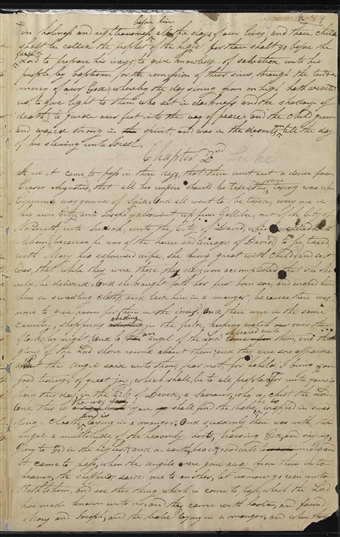 before him
in holiness and righteousness, all the days of our lives, and thou, child
shalt be called the prophet of the highest for thou shalt go before the
Lord to prepare his ways, to give knowledge of salvation unto his
people, by baptism for the remission of their sins, through the tender
mercy of our God; whereby the day spring from on high, hath visited
us, to give light to them who sit in darkness and the shadow of
death, to guide our feet into the way of peace, and the child grew
and waxed strong in spirit, and was in the deserts till the day
of his shewing unto Israel.
Chapter 2nd Luke
And it came to pass in those days, that there went out a decree from
Cesar Augustus, that all his empire should be taxed. This same taxing was when
Cyrenius was governor of Syria. And all went to be taxed, every one in
his own city, and Joseph also went up from Gallilee, out of the City of
Nazareth, into Judea, unto the City of David, which is called
(because he was of the house and lineage of David) to be taxed
with Mary, his espoused wife, she being great with Child, and so it
was that while they were there, the days were accomplished that she should
be delivered. And she brought forth her first born son, and wraped him
in swadling cloths, and laid him in a manger, because there was
none to give room for them in the inns. And there were in the same
country, shepherds abiding in the field, keeping watch over their
flocks by night. And lo an angel of the Lord appeared unto them, and the
glory of the Lord shone round about them; and they were sore afraid.
But the angel said unto them, fear not, for behold, I bring you
good tidings of great joy, which shall be to all people, for unto you is
born this day, in the City of David, a Saviour, who is Christ the Lord.
And this is the way you shall find the babe, he is wrapped in swad
ling Cloths, and is lying in a manger. And suddenly there was with the
angel a multitude of the heavenly host, praising God, and saying,
Glory to God in the highest, and on earth, peace, goodwill to men. And
it came to pass, when the angels were gone away from them into
heaven, the shepherds said one to another, let us now go even unto
Bethlehem, and see this thing which is come to pass, which the Lord
has made known unto us; and they came with haste, and found
Mary and Joseph, and the babe lying in a manger, and when they